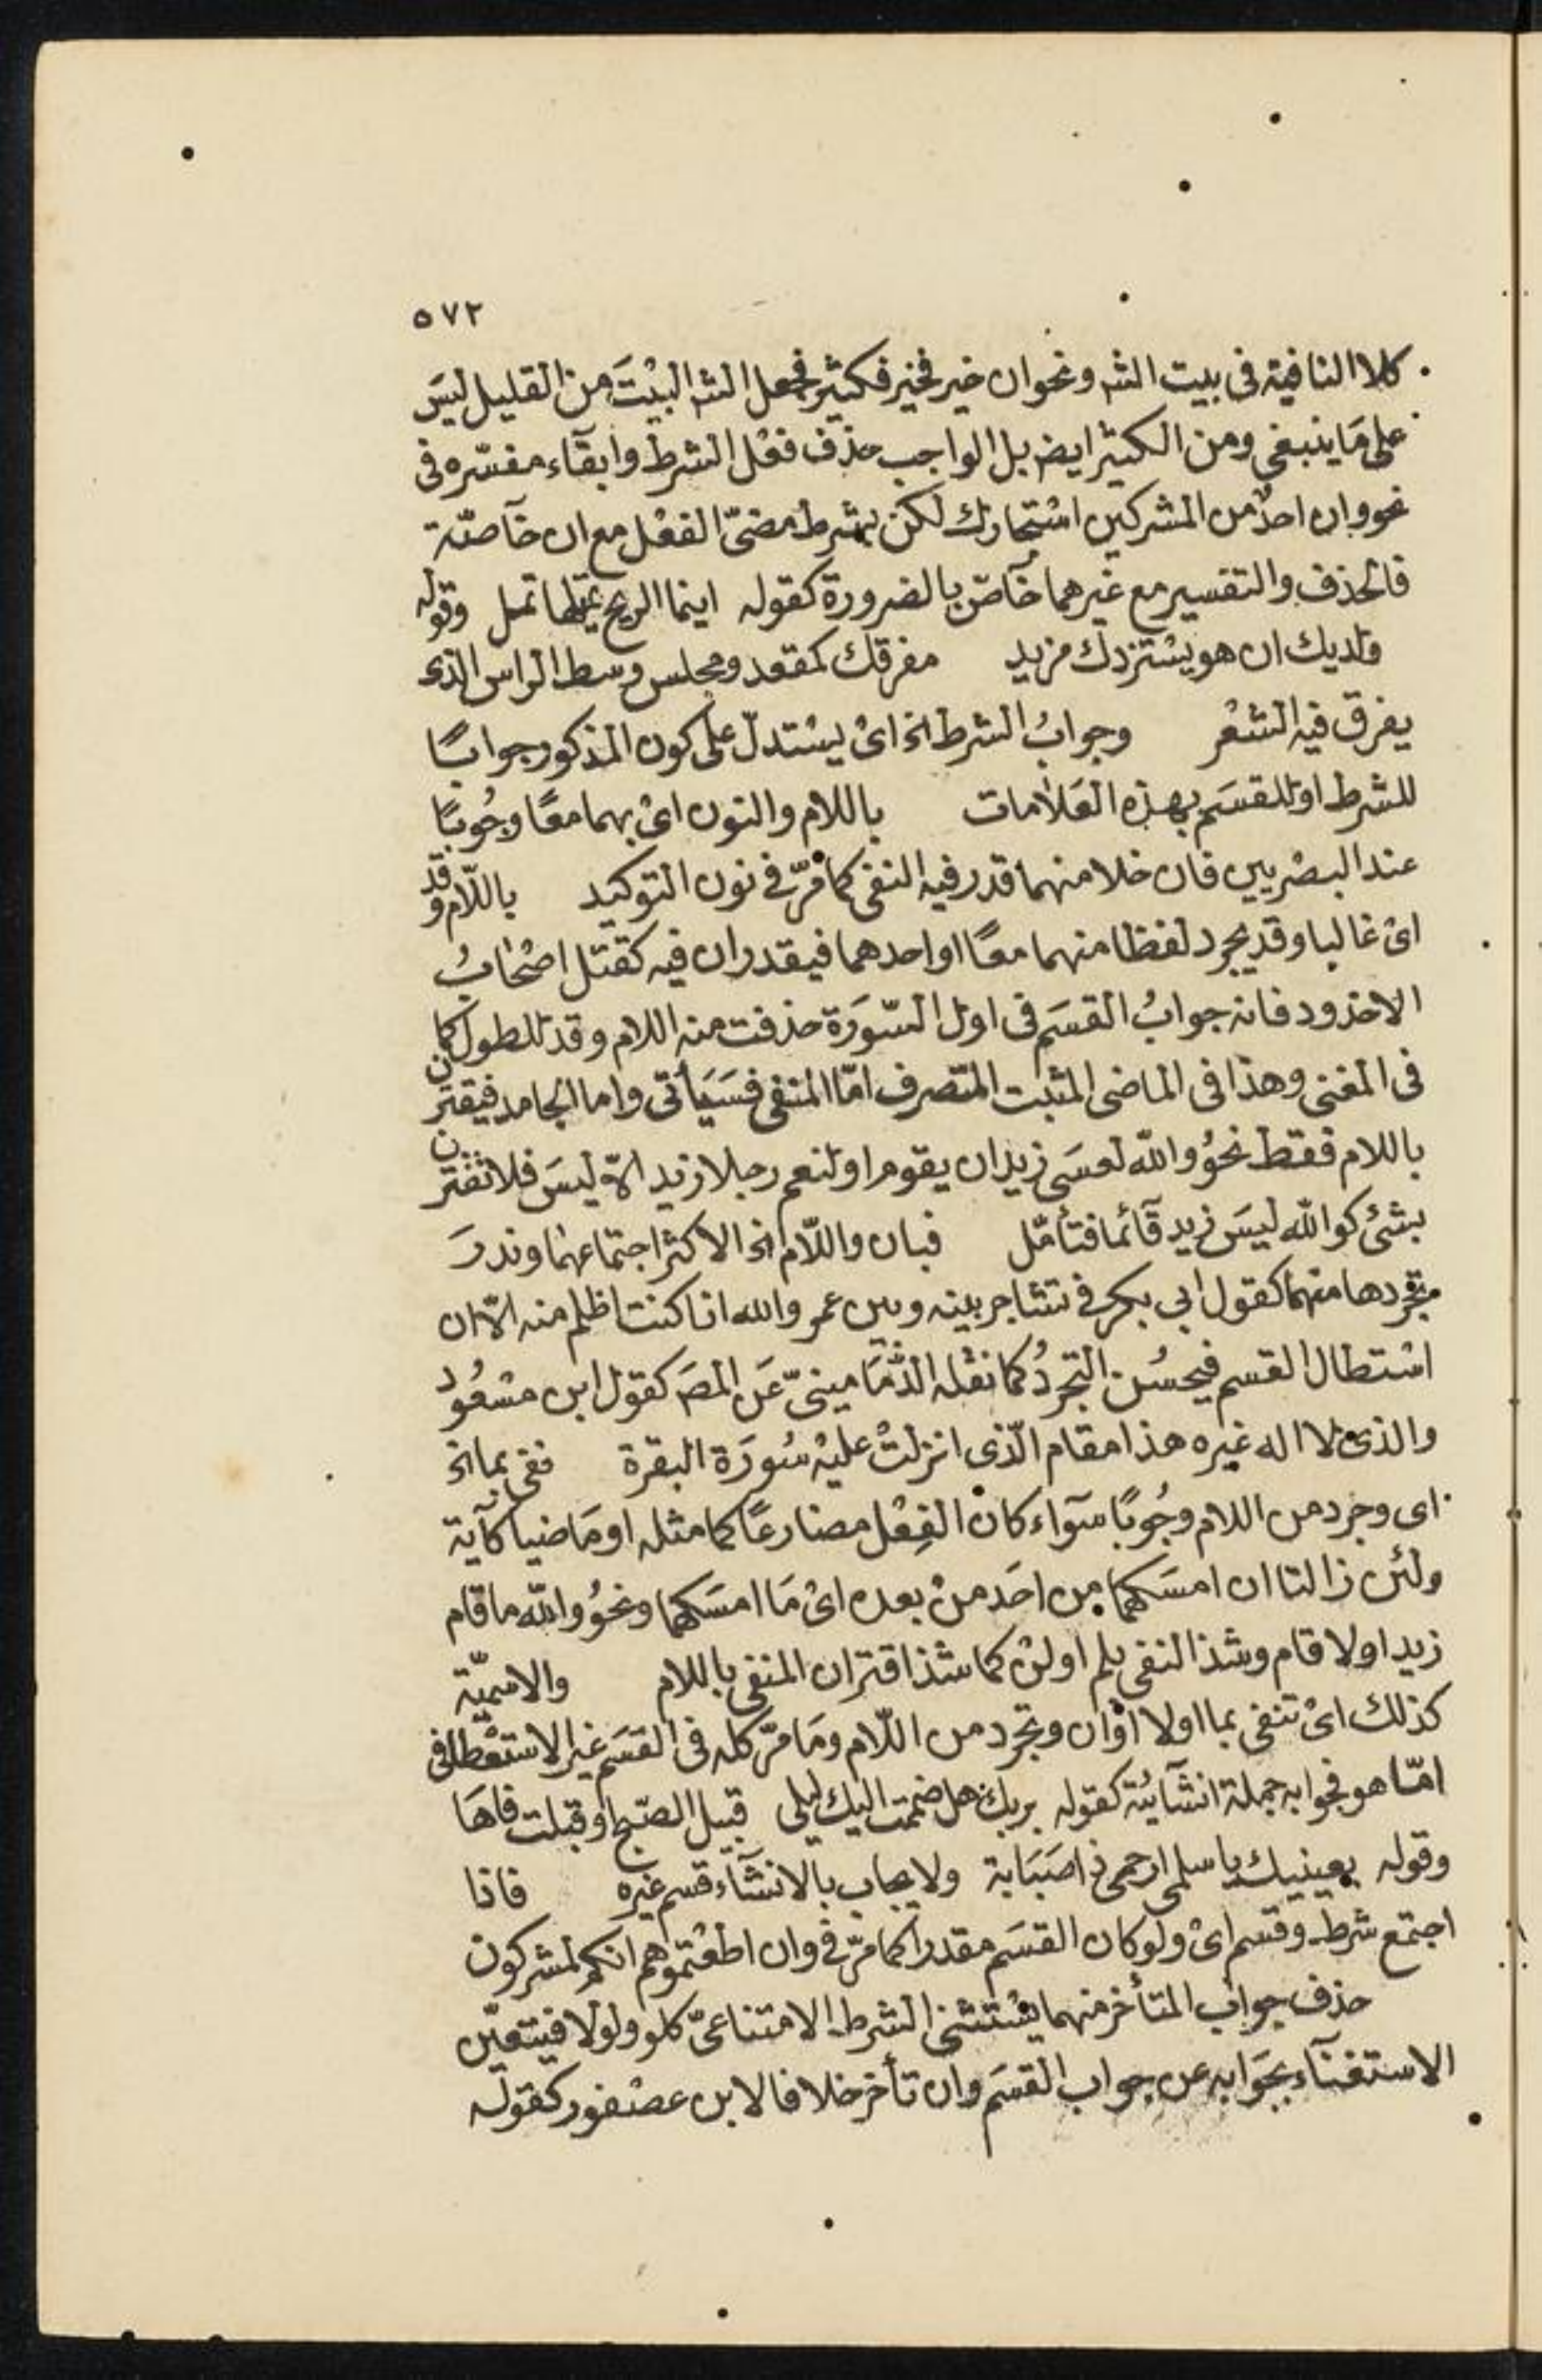 ٥٧٢
كلا النافية فى بيت الشه ونحو ان خير فخير فكثير فجعل الشه البيْتَ من القليل ليسَ
على مَا ينبغى ومن الكثير ايضه بل الواجب حذف فعْل الشرط وابقآء مفسّره فى
نحو وان احدٌ من المشركين اسْتجارك لكن بشرط مضىّ الفعْل مع ان خآصّة
فالحذف والتفسير مع غيرهما خآصّ بالضرورة كقوله اينما الريح تميّلها تمل وقوله
ولديك ان هو يسْتزدك مزيد مفرقك كمقعد ومجلس وسط الراس الذى
يفرق فيه الشعْر وجوابُ الشرط اﻟﺦ اىْ يسْتدلّ على كون المذكور جوابًا
للشرط او للقسَم بهذه العَلامات باللام والنون اىْ بهما معًا وجُوبًا
عند البصْريين فان خلا منهما قدر فيه النفى كما مرّ فى نون التوكيد باللّام وقد
اىْ غالبا وقد يجرد لفظا منهما معًا او احدهما فيقدران فيه كقتل اصْحَابُ
الاخذود فانه جوابُ القسَم فى اول السّورَة حذفت منه اللام وقد للطول كما
فى المغنى وهذا فى الماضى المثبت المتّصرف امّا المنفى فسَيَأتى واما الجامد فيقترن
باللام فقط نحوُ والله لعسَى زيد ان يقوم او لنعم رجلا زيد الّا ليسَ فلا تقترن
بشئ كوالله ليسَ زيد قآئما فتأمّل فبان واللّام اﻟﺦ الاكثر اجتماعهما وندرَ
تجردها منهما كقول ابى بكر فى تشاجر بينه وبين عمر والله انا كنت اظلم منه الّا ان
اسْتطال القسم فيحسُن التجردُ كما نقله الدّمَامينىّ عَن المصَ كقول ابن مسْعُود
والذى لا اله غيره هذا مقام الّذى انزلتْ عليْه سُورَة البقرة نفى بما اﻟﺦ
اى وجرد من اللام وجُوبًا سوآء كان الفِعْل مضارعًا كما مثله او مَاضيا كآية
ولئن زالتا ان امسَكهما من احَد منْ بعده اىْ مَا امسَكهما ونحوُ والله ما قام
زيد او لا قام وشذ النفى بلم او لنْ كما شذ اقتران المنفى باللام والاسميّة
كذلك اىْ تنفى بما او لا اوْ ان وتجرد من اللّام ومَا مرّ كله فى القسَم غير الاستعْطافى
امّا هو فجوابه جملة انشآئيّة كقوله بربك هل ضممت اليك ليلى قبيل الصّبح او قبلت فاهَا
وقوله بعينيك يا سلمى ارحمى ذا صَبَابة ولا يجاب بالانشآء قسم غيره فاذا
اجتمع شرط وقسم اىْ ولو كان القسَم مقدرا كما مرّ فى وان اطعْتموهم انكم لمشركون
حذف جواب المتأخر منهما يسْتثنى الشرط الامتناعىّ كلو ولولا فيتعيّن
الاستغنآء بجَوابه عن جواب القسَم وان تأخر خلافا لابن عصْفور كقوله